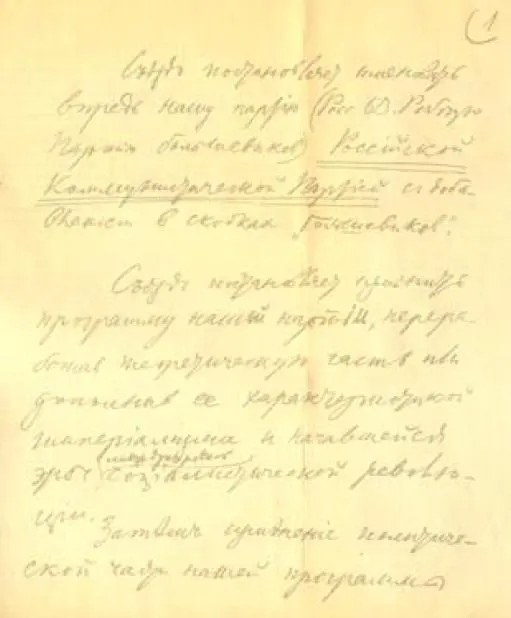 1
Съезд постановляет именовать
впредь нашу партию (Росс. СД. Рабочую
Партию большевиков) Российской
Коммунистической Партией с доба-
влением в скобках „большевиков".
Съезд постановляет изменить
программу нашей партии, перера-
ботав теоретическую часть или
дополнив ее характеристикой
империализма и начавшейся
международной
эры социалистической револю-
ции.
Затем изменение политиче-
ской части нашей программы